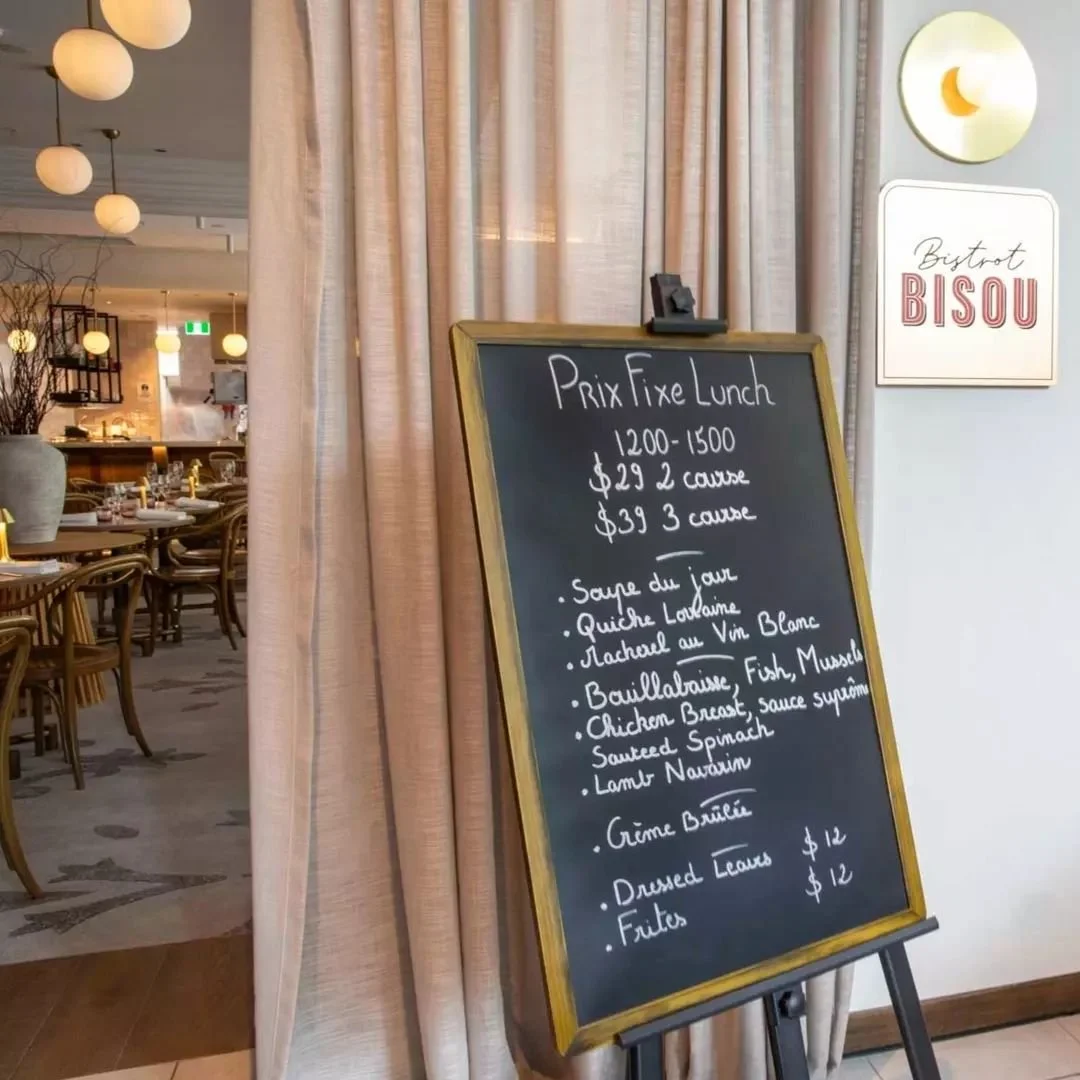 Bistrot
BISOU
Prix Fixe Lunch
1200-1500
$29 2 course
$39 3 course
. Soupe du jour
. Quiche Lorraine
. Mackerel au Vin Blanc
. Bouillabaisse, Fish, Mussels
. Chicken Breast, sauce suprême
Sauteed Spinach
. Lamb Navarin
. Crème Brûlée
. Dressed Leaves $12
. Frites $12